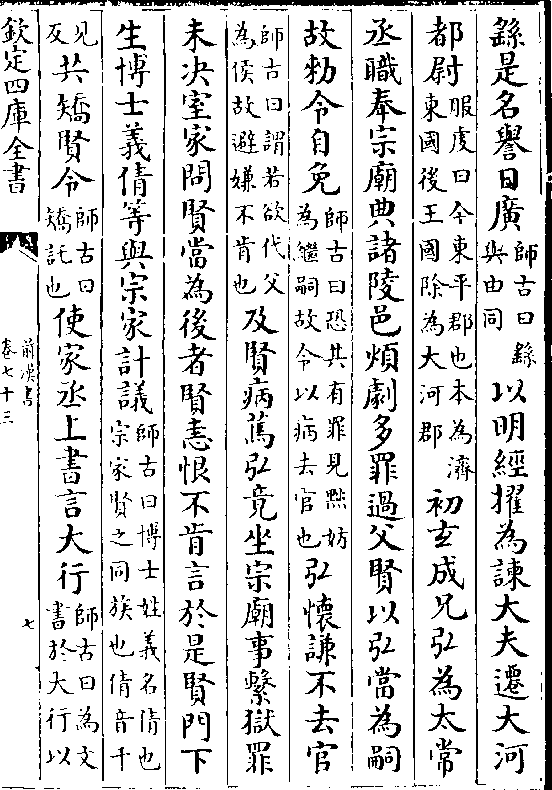 繇是名譽日廣師古曰繇與由同以明經擢為諫大夫遷大河
都尉服虔曰今東平郡也本為濟東國後王國除為大河郡初玄成兄弘為太常
丞職奉宗廟典諸陵邑煩劇多罪過父賢以弘當為嗣
故勅令自免師古曰恐其有罪見黜妨為繼嗣故令以病去官也弘懷謙不去官
師古曰謂若欲代父為侯故避嫌不肯也及賢病篤弘竟坐宗廟事繫獄罪
未決室家問賢當為後者賢恚恨不肯言於是賢門下
生博士義倩等與宗家計議師古曰博士姓義名倩也宗家賢之同族也倩音千
見反共矯賢令師古曰矯託也使家丞上書言大行師古曰為文書於大行以
欽定四庫全書
前漢書
卷七十三
七